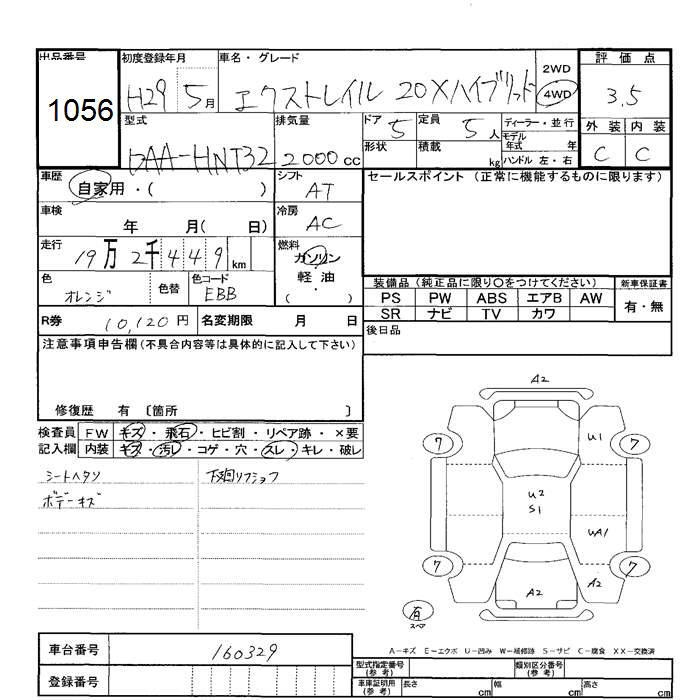 出品番号 初度登録年月 車名・グレード 2WD 評価点
1056 H29 5月 エクストレイル 20Xハイブリッド 4WD 3.5
型式 排気量 ドア 5 定員 5人 ディーラー・並行 外装 内装
DAA-HNT32 2000cc 形状 積載 kg モデル年式 年 C C
ハンドル 左・右
車歴 シフト セールスポイント (正常に機能するものに限ります)
自家用・( ) AT
車検 冷房
年 月( 日) AC
走行 19万2千449km 燃料 ガソリン
軽・油
( )
色 色替 色コード 装備品 (純正品に限り○をつけてください) 新車保証書
オレンジ EBB PS PW ABS エアB AW 有・無
R券 10,120円 名変期限 月 日 SR ナビ TV カワ
注意事項申告欄(不具合内容等は具体的に記入して下さい) 後日品
修復歴 有 〔箇所 〕
検査員 FW キズ・飛石・ヒビ割・リペア跡・×要
記入欄 内装 キズ・汚レ・コゲ・穴・スレ・キレ・破レ
シートヘタリ 下廻リフショク
ボデーキズ
A2
7 U1 7
U2
S1
UA1
7 7
A2 A2
有
スペア
車台番号 160329
A-キズ E-エクボ U-凹み W-補修跡 S-サビ C-腐食 XX-交換済
登録番号 型式指定番号(参考) 類別区分番号(参考)
車庫証明用(参考) 長さ cm 幅 cm 高さ cm